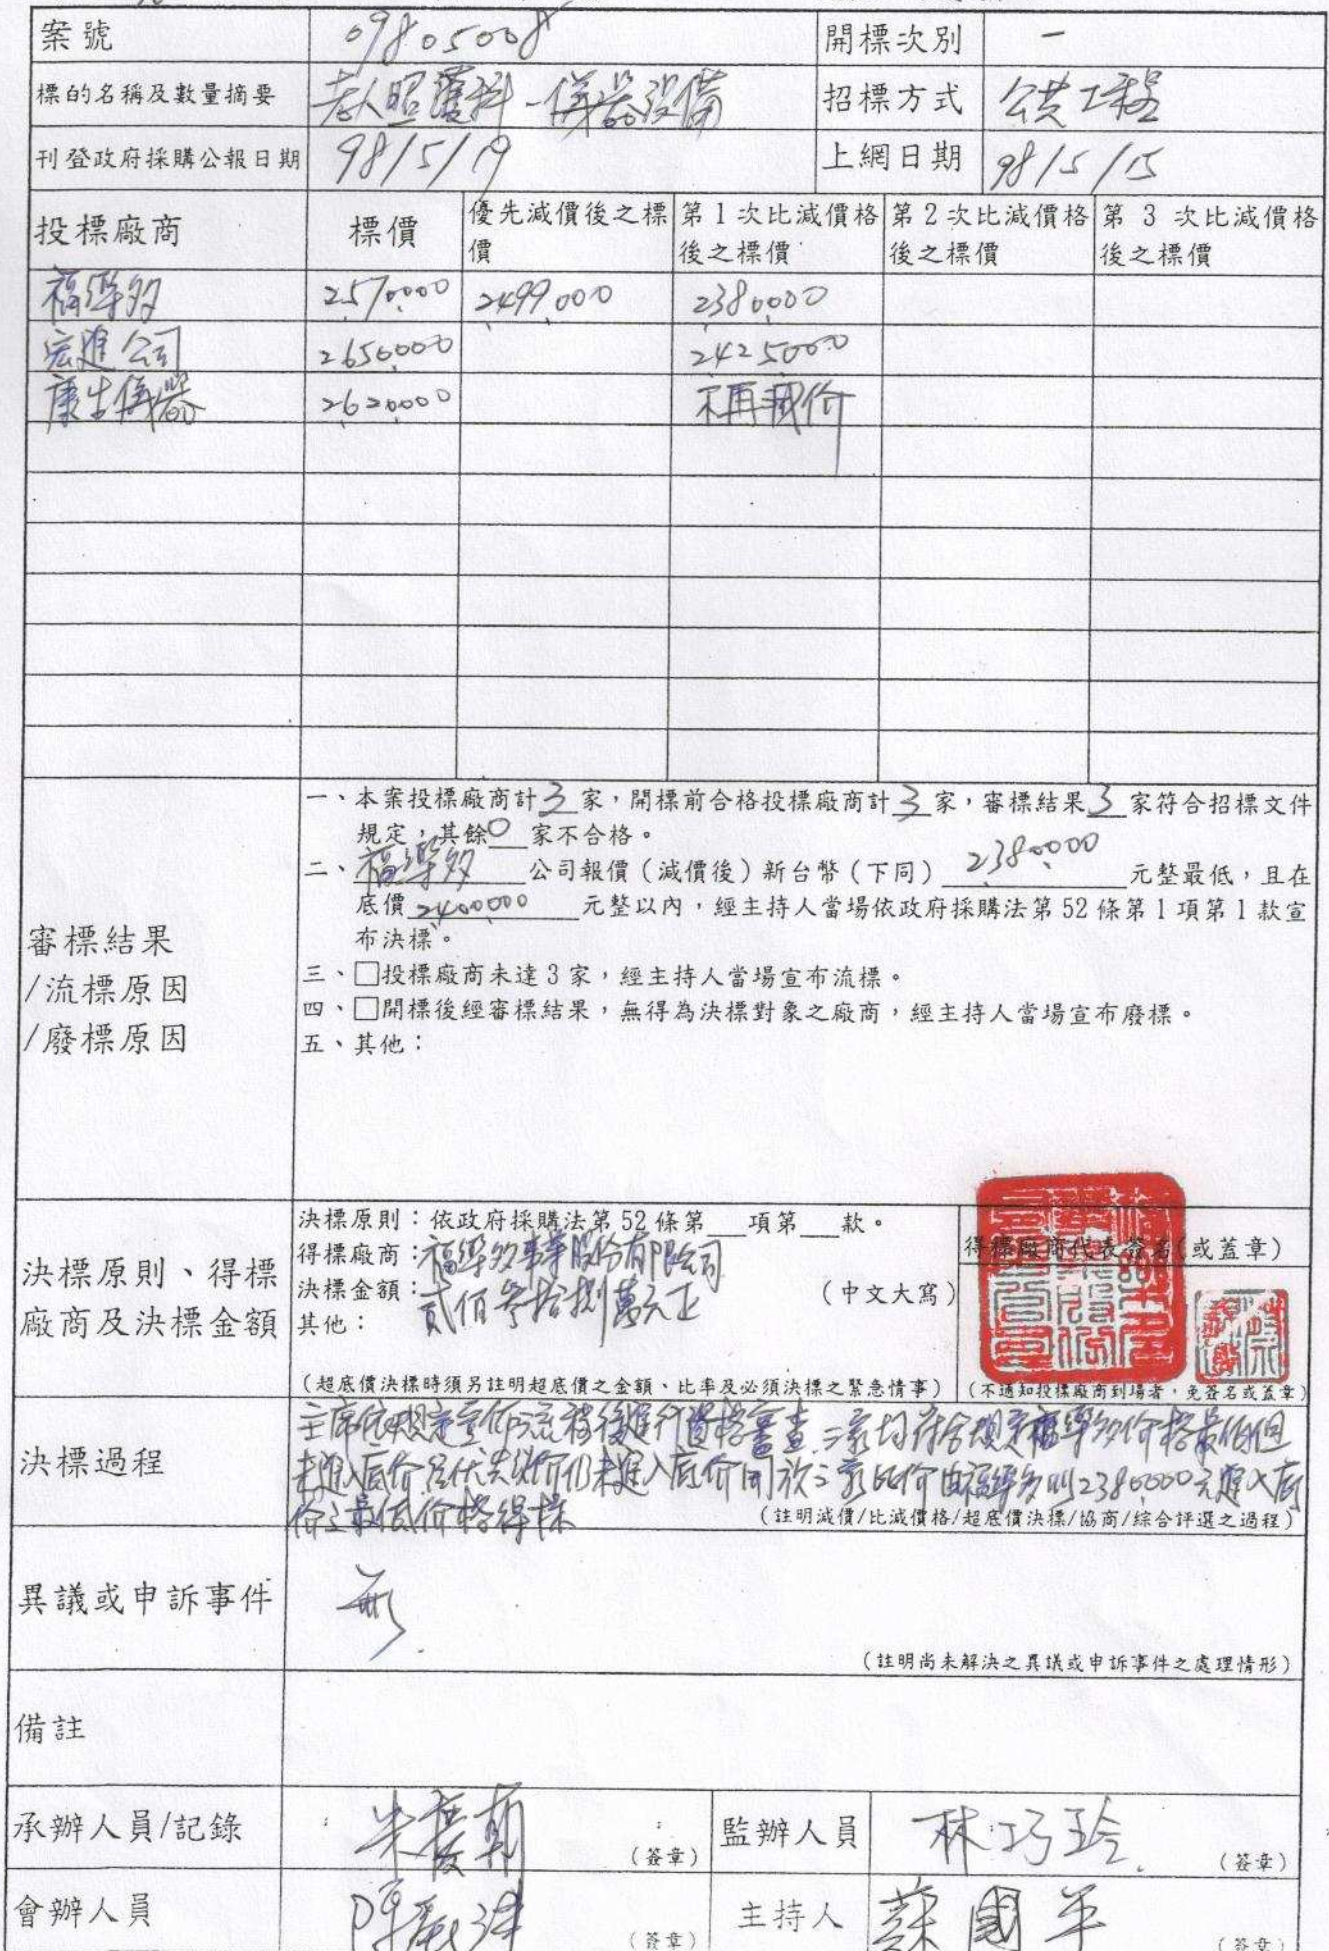 案號 09805008 開標次別 一
標的名稱及數量摘要 老人照護科-儀器設備 招標方式 公共工程
刊登政府採購公報日期 98/5/19 上網日期 98/5/15
投標廠商 標價 優先減價後之標價 第1次比減價格後之標價 第2次比減價格後之標價 第3次比減價格後之標價
福樂多 2570000 2499000 2380000
宏進公司 2650000 2425000
康生儀器 2620000 不再減价
審標結果
/流標原因
/廢標原因
一、本案投標廠商計3家,開標前合格投標廠商計3家,審標結果3家符合招標文件
規定,其餘0家不合格。
二、福樂多公司報價(減價後)新台幣(下同)2380000元整最低,且在
底價2400000元整以內,經主持人當場依政府採購法第52條第1項第1款宣
布決標。
三、□投標廠商未達3家,經主持人當場宣布流標。
四、□開標後經審標結果,無得為決標對象之廠商,經主持人當場宣布廢標。
五、其他:
決標原則、得標
廠商及決標金額
決標原則:依政府採購法第52條第__項第__款。
得標廠商:福樂多事業股份有限公司
決標金額:貳佰參拾捌萬元正(中文大寫)
其他:
(超底價決標時須另註明超底價之金額、比率及必須決標之緊急情事)
得標廠商代表簽名(或蓋章)
(不通知投標廠商到場者,免簽名或蓋章)
決標過程
主席依規定宣佈流程後進行資格審查,三家均符合規定福樂多价格最低但
未進入底价經優先減价仍未進入底价開放三家比价由福樂多以2380000元進入底
价之最低价格得標
(註明減價/比減價格/超底價決標/協商/綜合評選之過程)
異議或申訴事件 無
(註明尚未解決之異議或申訴事件之處理情形)
備註
承辦人員/記錄 朱慶朝 (簽章) 監辦人員 林巧玲 (簽章)
會辦人員 (簽章) 主持人 蘇國平 (簽章)